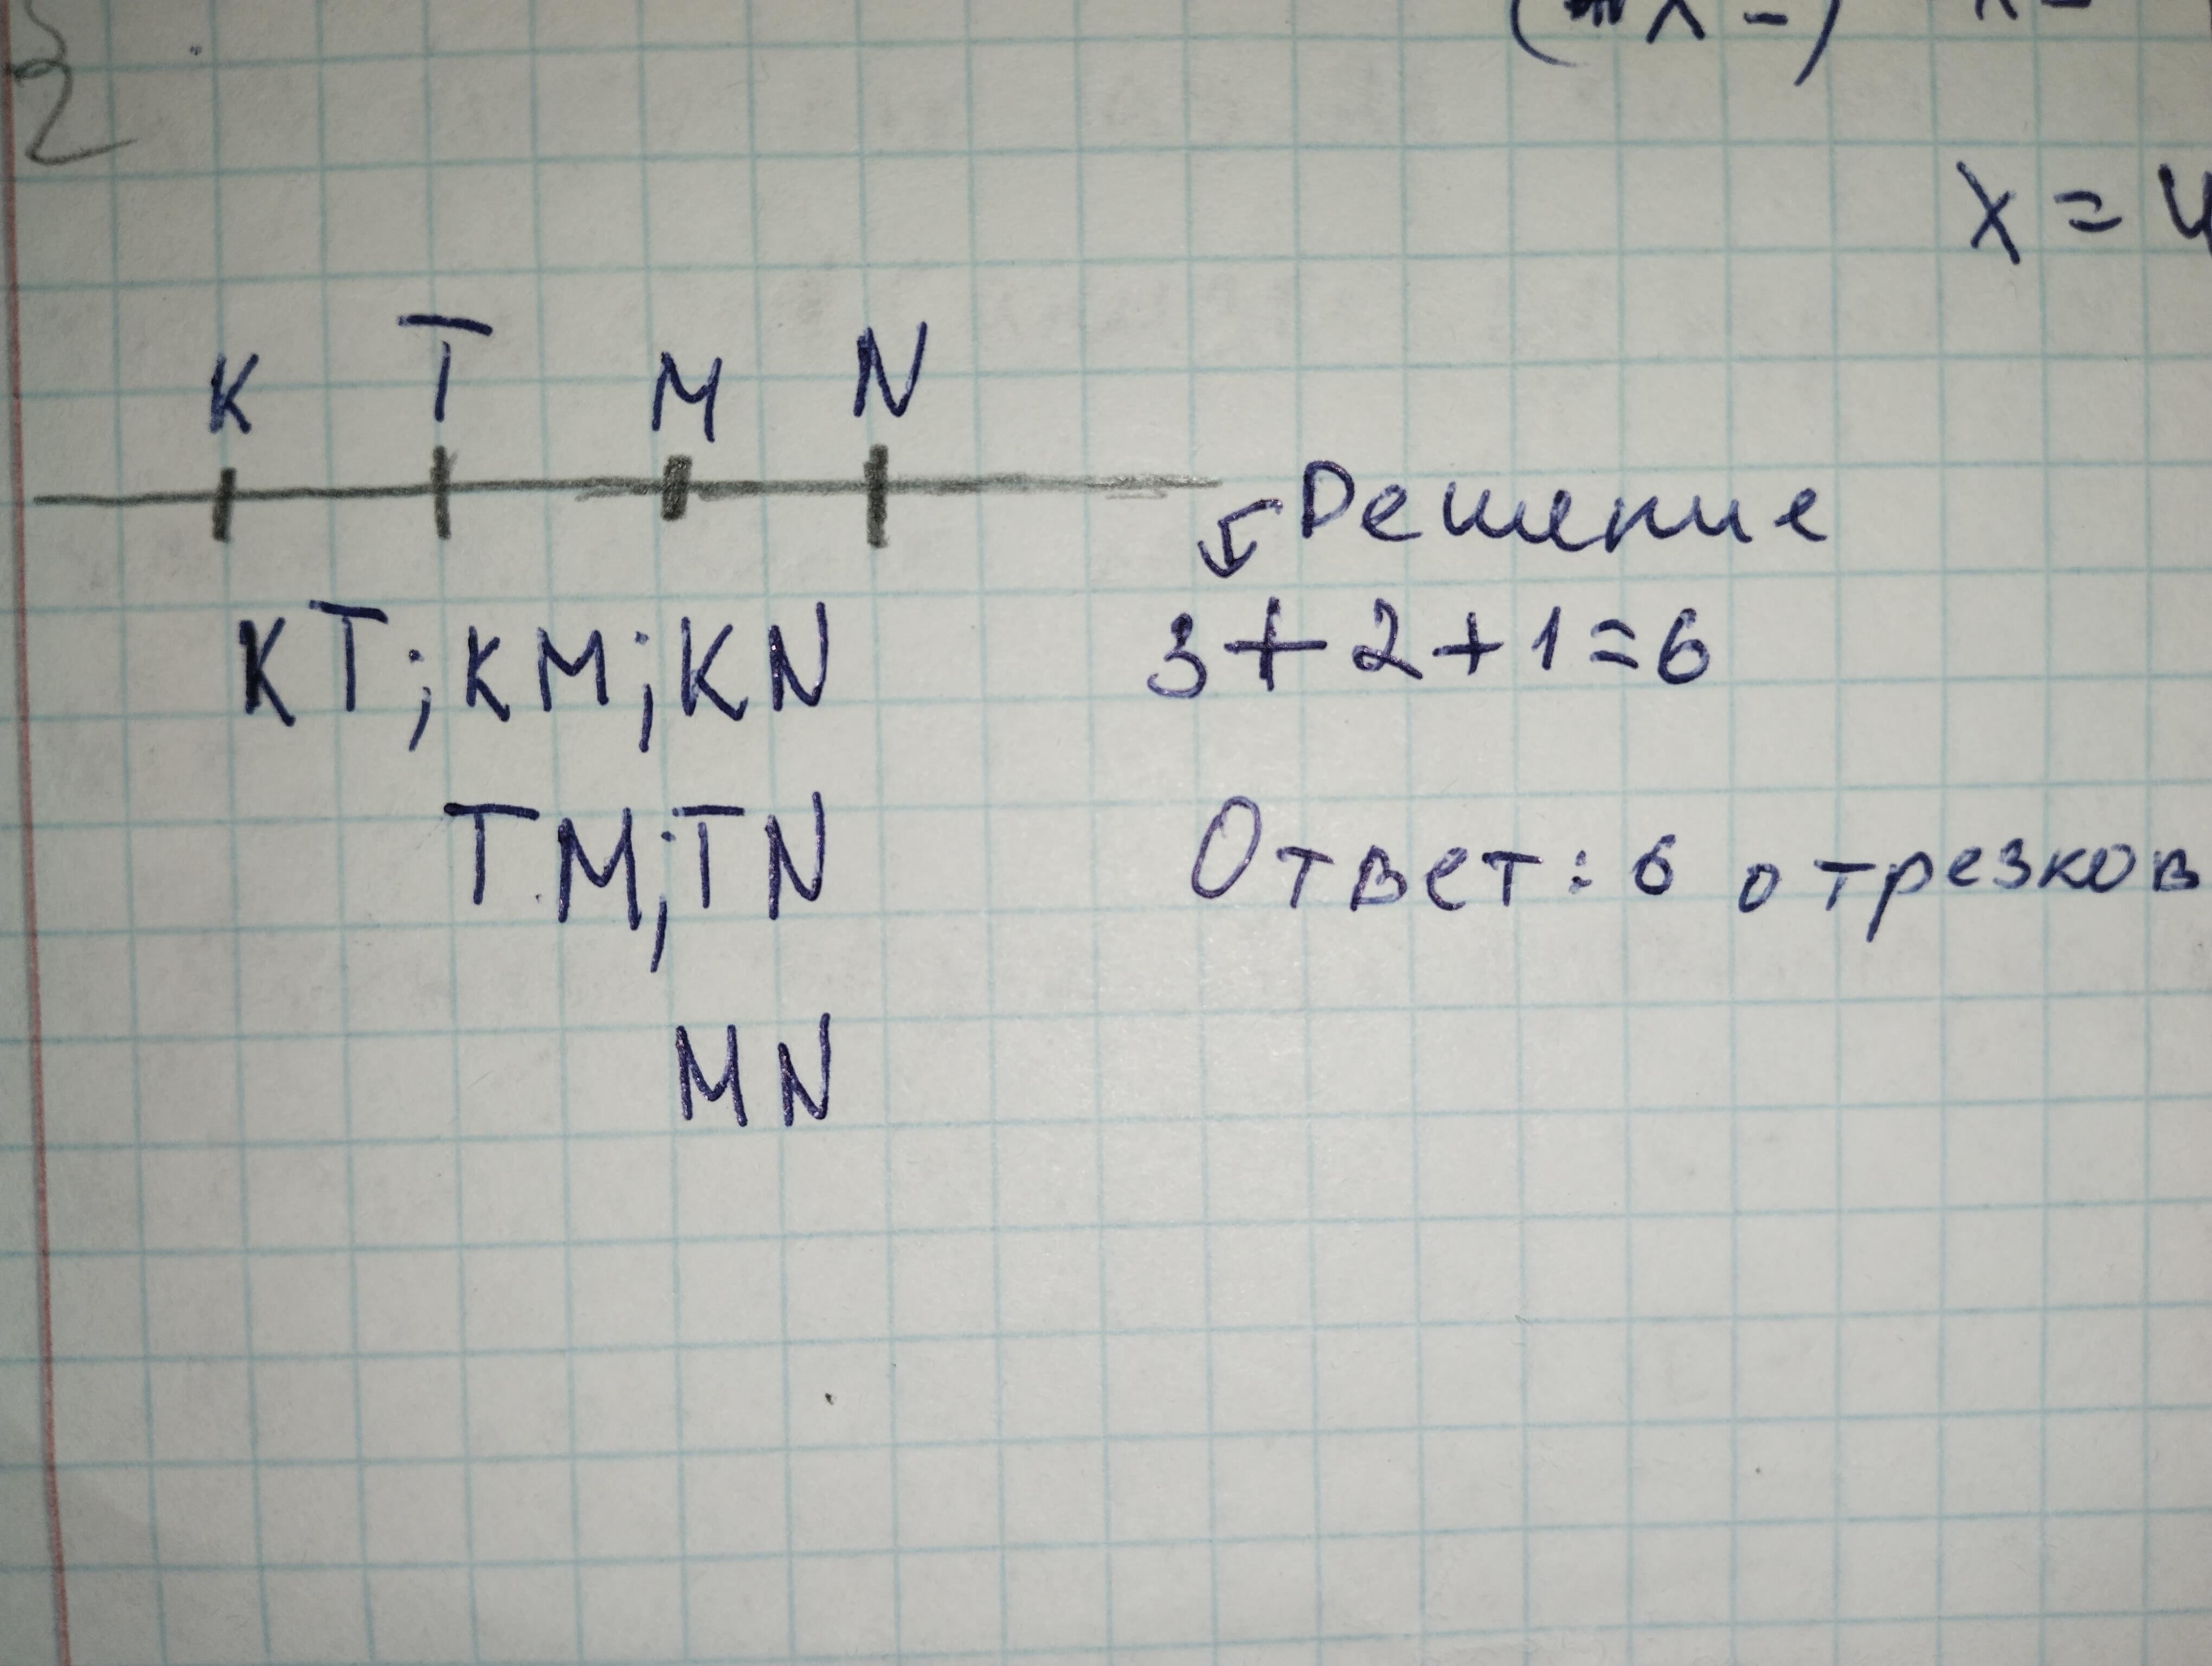 x = 4
K T M N
Решение
KT; KM; KN 3+2+1=6
TM; TN Ответ: 6 отрезков
MN